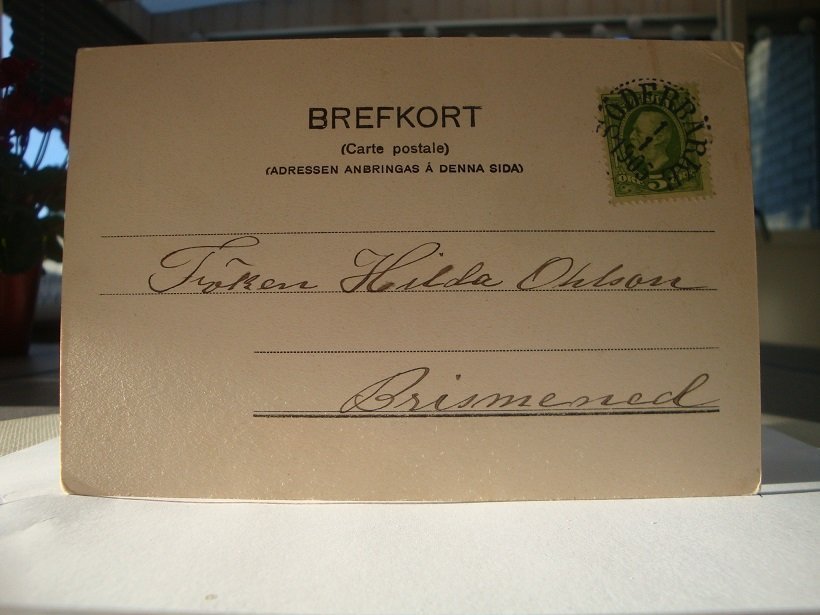 BREFKORT
(Carte postale)
(ADRESSEN ANBRINGAS Å DENNA SIDA)
SÖDERBÄRKE
5
Fröken Hilda Ohlson
Brismened